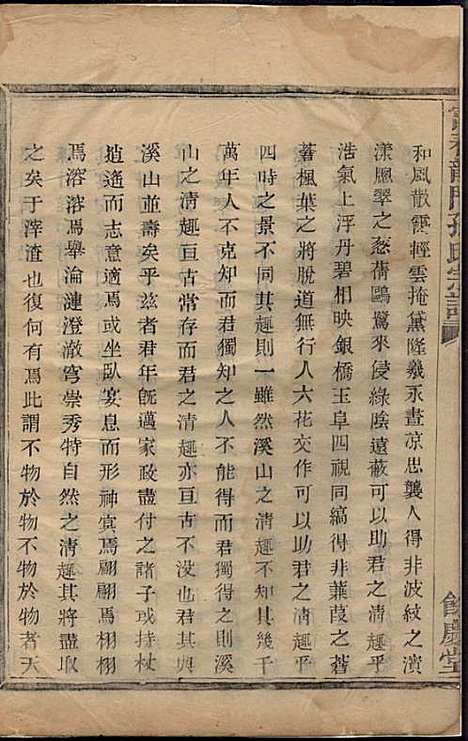 和風散靄輕雲掩黛隆羲永晝涼思襲人得非波紋之演
漾風翠之葱蒨鷗鷺來侵綠陰遠蔽可以助君之清趣乎
浩氣上浮丹碧相映銀橋玉阜四視同縞得非蒹葭之蒼
蒼楓葉之將脫道無行人六花交作可以助君之清趣乎
四時之景不同其趣則一雖然溪山之清趣不知其幾千
萬年人不克知而君獨知之人不能得而君獨得之則溪
山之清趣亘古常存而君之清趣亦亘古不没也君其與
溪山並壽矣乎兹者君年既邁家政盡付之諸子或持杖
逍遙而志意適焉或坐臥宴息而形神宣焉翩翩焉栩栩
焉溶溶焉舉淪漣澄澈穹崇秀特自然之清趣其將盡取
之矣于滓渣也復何有焉此謂不物於物不物於物者天
龍門孫氏宗譜
餘慶堂